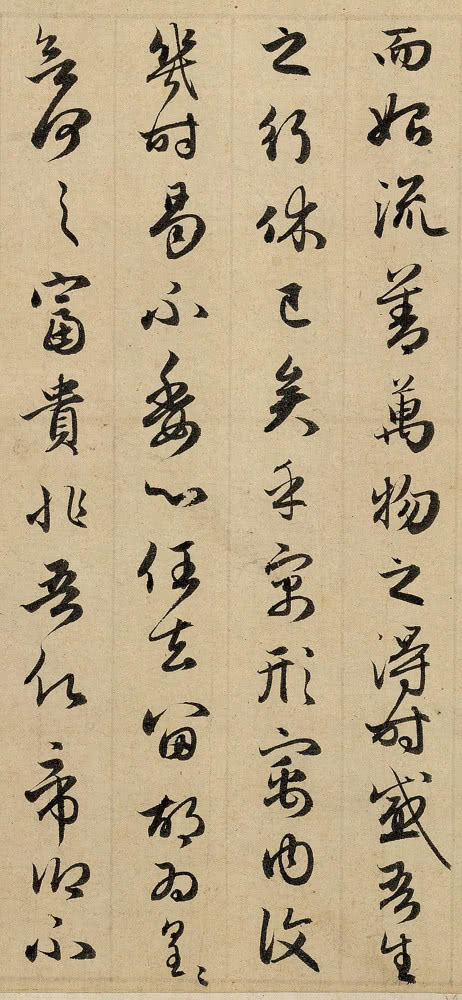 而始流善萬物之得時感吾生
之行休已矣乎寓形寓內復
幾時曷不委心任去留胡為皇〻
何之富貴非吾願帝鄉不